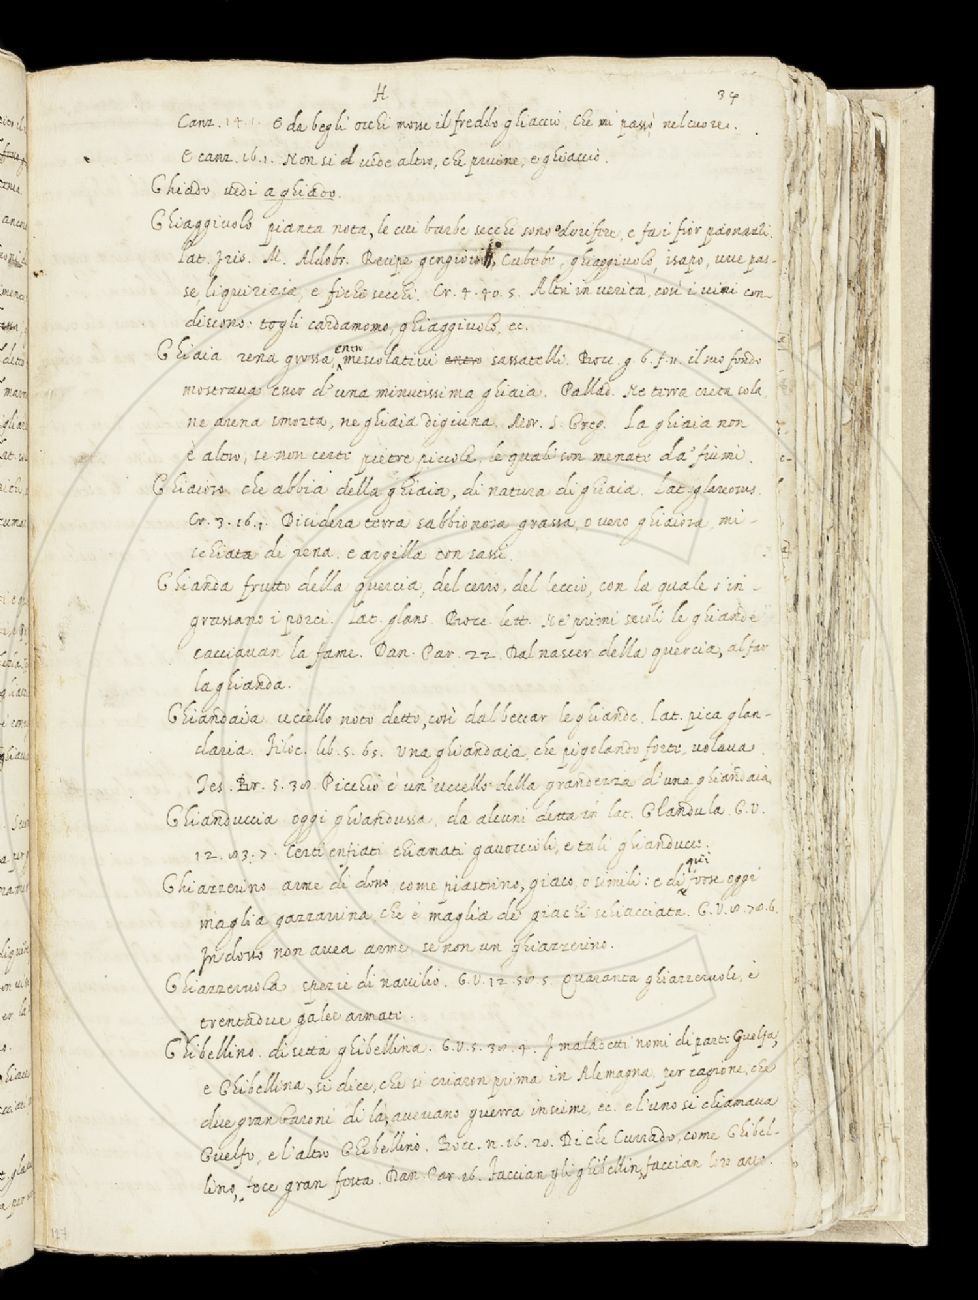 H 34
Canz. 14.1. E da begli occhi mosse il freddo ghiaccio, che mi passò nel cuore.
E canz. 16.1. Non si vede altro, che pruine, e ghiaccio.
Ghiado vedi a ghiado.
Ghiaggivolo pianta nota, le cui barbe secche sono odorifere, e fa i fior paonazzi.
Lat. Iris. M. Aldobr. Recipe gengiovo, Cubebe, ghiaggivolo, isapo, uve pas-
se liquirizia, e fichi secchi. Cr. 4.40.5. Altri in verità, così i vini con-
discono: togli cardamomo, ghiaggivolo, ec.
Ghiaia rena grossa, entrovi mescolativi entro sassatelli. Bocc. g.6.f.11. il suo fondo
mostrava esser d'una minutissima ghiaia. Pallad. Ne terra creta sola
ne arena smorta, ne ghiaia digiuna. Mor. S. Greg. La ghiaia non
è altro, se non certe pietre piccole, le quali son menate da' fiumi.
Ghiaioso che abbia della ghiaia, di natura di ghiaia. Lat. glareosus.
Cr. 3.16.1. Disidera terra sabbionosa grassa, o vero ghiaiosa, mi-
schiata de rena, e argilla con sassi.
Ghianda frutto della quercia, del cerro, del leccio, con la quale s'in-
grassano i porci. Lat. glans. Bocc. lett. Ne' primi secoli le ghiande
cacciavan la fame. Dan. Par. 22. Dal nascer della quercia, al far
la ghianda.
Ghiandaia uccello noto detto così dal beccar le ghiande. Lat. pica glan-
daria. Filoc. lib. 5. 65. Una ghiandaia, che pigolando forte, volava.
Tes. Br. 5.30. Picchio è un'uccello della grandezza d'una ghiandaia.
Ghianduccia oggi ghiandussa, da alcuni detta in lat. Glandula. G.V.
12. 83.7. Certi enfiati chiamati gavoccioli, e tali ghianducce.
Ghiazzerino arme di dosso, come piastrino, giaco, o simili: e di qui forse oggi
maglia gazzarina che è maglia de giachi schiacciata. G.V.
In dosso non avea arme se non un ghiazzerino.
Ghiazzervola spezie di navilio. G.V. 12. Quaranta ghiazzervole, e
trentadue galee armate.
Ghibellino. di setta ghibellina. G.V.5. I maladetti nomi di parte Guelfa,
e Ghibellina, si dice, che si criaron prima in Alemagna per cagione, che
due gran baroni di là, aveano guerra insieme, ec. e l'uno si chiamava
Guelfo, e l'altro Ghibellino. Bocc. n.16. 20. Di che Currado, come Ghibel-
lino, fece gran festa. Dan. Par. Faccian gli ghibellin, faccian lor arte.
127